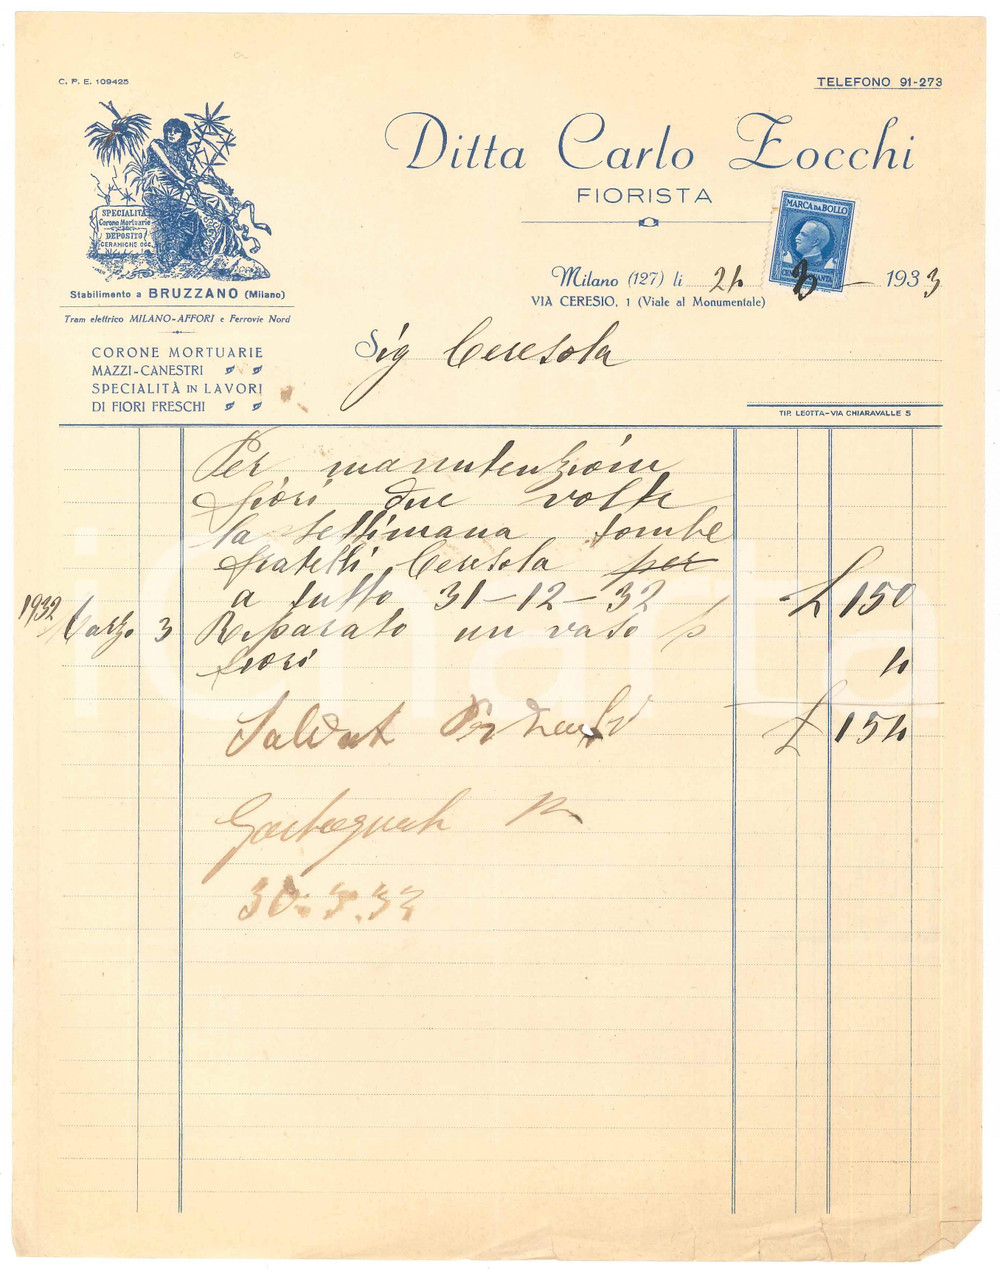 C. P. E. 109425
TELEFONO 91-273
Ditta Carlo Zocchi
FIORISTA
MARCA DA BOLLO
SPECIALITÀ
Corone Mortuarie
DEPOSITO
CERAMICHE ECC.
Stabilimento a BRUZZANO (Milano)
Tram elettrico MILANO-AFFORI e Ferrovie Nord
CORONE MORTUARIE
MAZZI-CANESTRI
SPECIALITÀ IN LAVORI
DI FIORI FRESCHI
Milano (127) li 24 3 1933
VIA CERESIO, 1 (Viale al Monumentale)
Sig Ceresola
TIP. LEOTTA-VIA CHIARAVALLE 5
Per manutenzioni
fiori due volte
la settimana tombe
fratelli Ceresola per
a tutto 31-12-32 £ 150
1932 Marzo 3 Riparato un vaso p
fiori 4
£ 154
30.3.33
iCharta